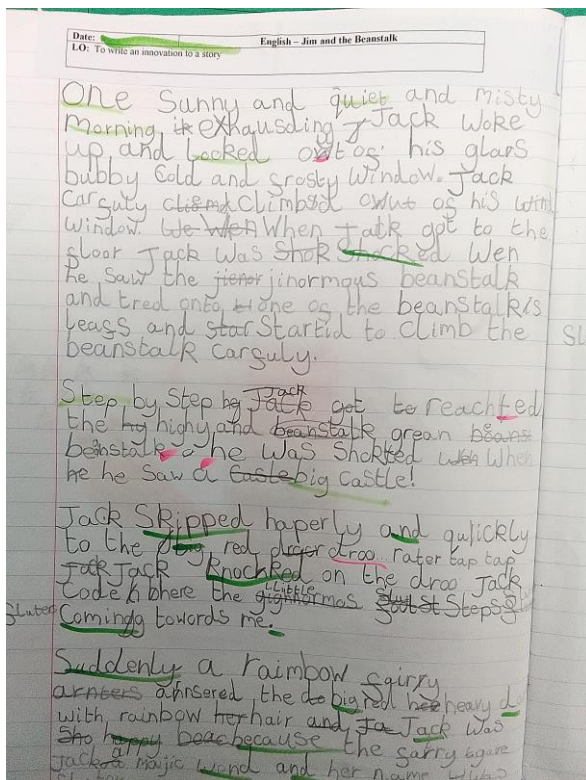 Date:
English – Jim and the Beanstalk
LO: To write an innovation to a story
One Sunny and quiet and misty
morning, exhausding Jack woke
up and Looked owt os his glars
bubby Cold and srosty window. Jack
Carsuly climd Climbed owut os his wind
window. We Wen When Jack got to the
sloor Jack was Shok Shocked Wen
he saw the jienor jinormous beanstalk
and tred onto one os the beanstalk's
leass and star Startid to climb the
beanstalk carsuly.
Step by Step he Jack Jack got to reachted
the hy highy and beanstalk grean beans
beanstalk. he was Shorkted wen When
he he saw a Castle big castle!
Jack Skipped haperly and quickly
to the big red droo rater tap tap
Jack Jack knochked on the droo Jack
Code h bhere the Little Steps
Sluted Comingg towords me.
Suddenly a raimbow sairry
annsered the do big red heavy
with rainbow her hair and Ja Jack was
Sho happy beac because the sarry
Jack a majic wand and her name was